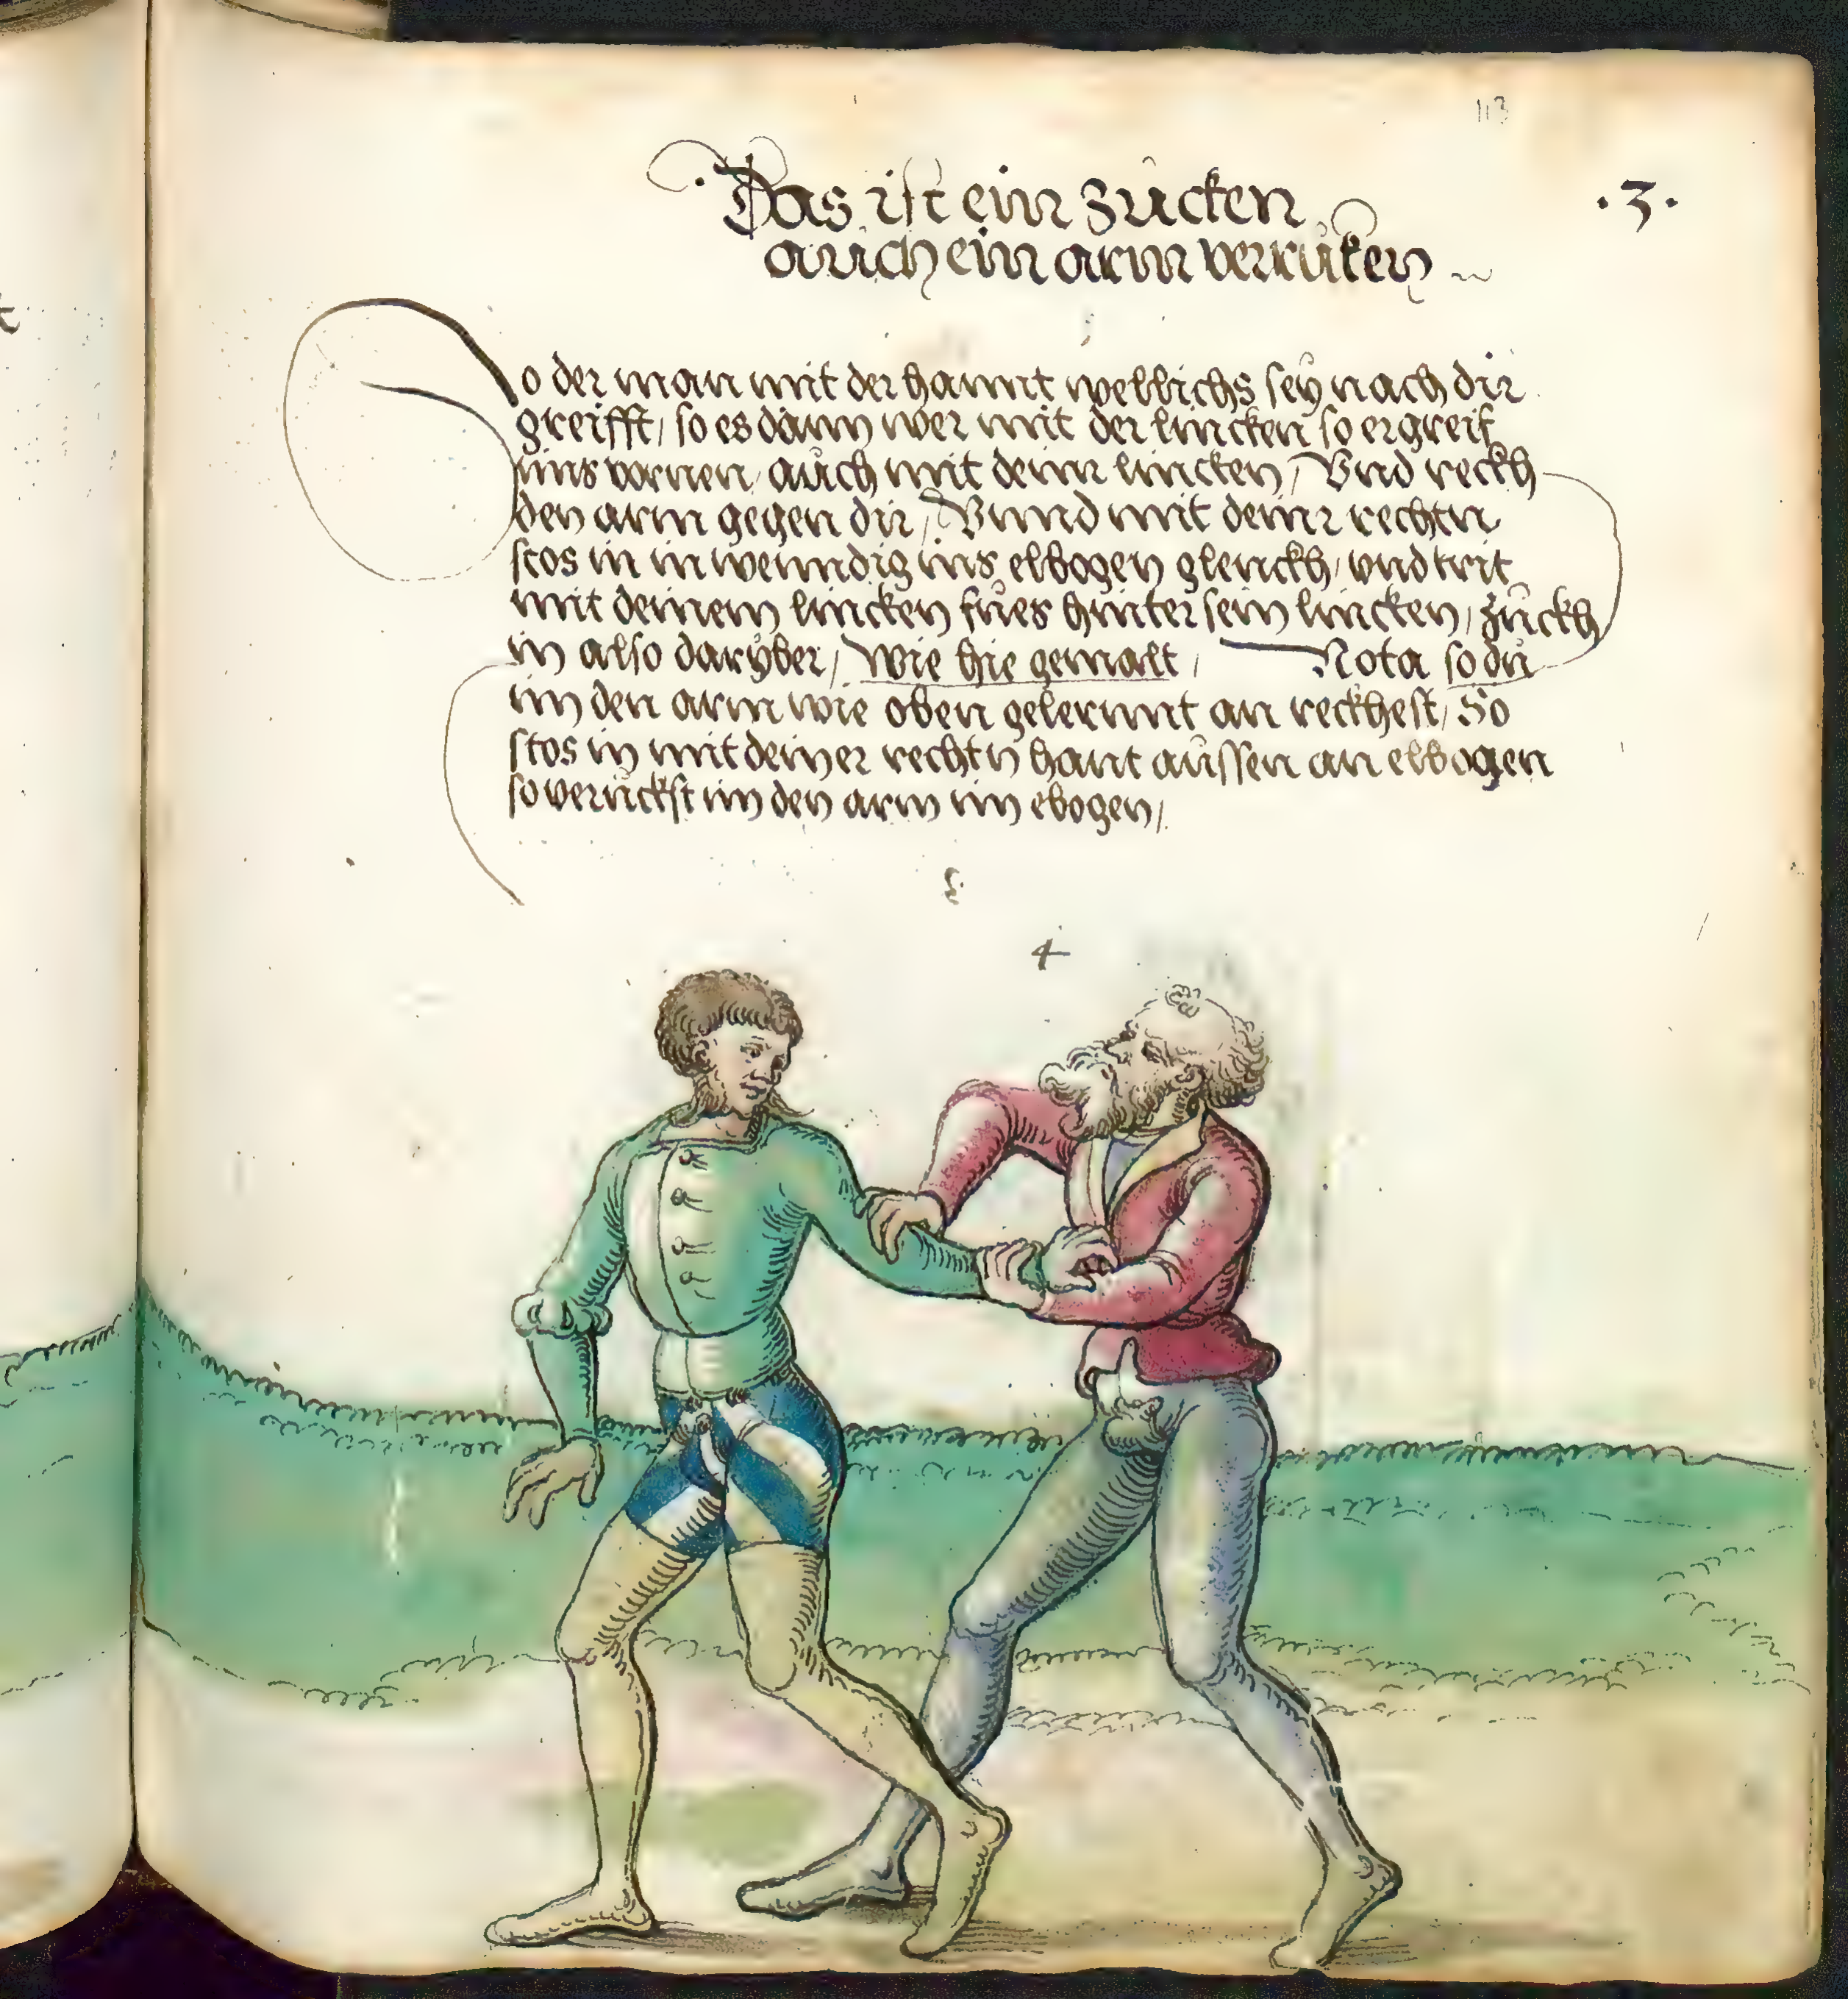 113
.3.
Das ist ein zucken
auch ein arm verrůken
So der man mit der hannt wellichs seÿ nach dir
greifft / so es dann wer mit der lincken so ergreif
ims vornen auch mit deinr lincken / Vnd reckh
den arm gegen dir / Vnnd mit deinr rechtn
stos in inwenndig ins elbogen glenckh / vnd trit
mit deinem lincken fues hinter sein lincken / zuckh
in also darÿber / wie hie gemalt / Nota so du
im den arm wie oben gelernnt an reckhest / So
stos in mit deiner rechtn hant aussen an elbogen
so veruckst im den arm im ebogen /
4